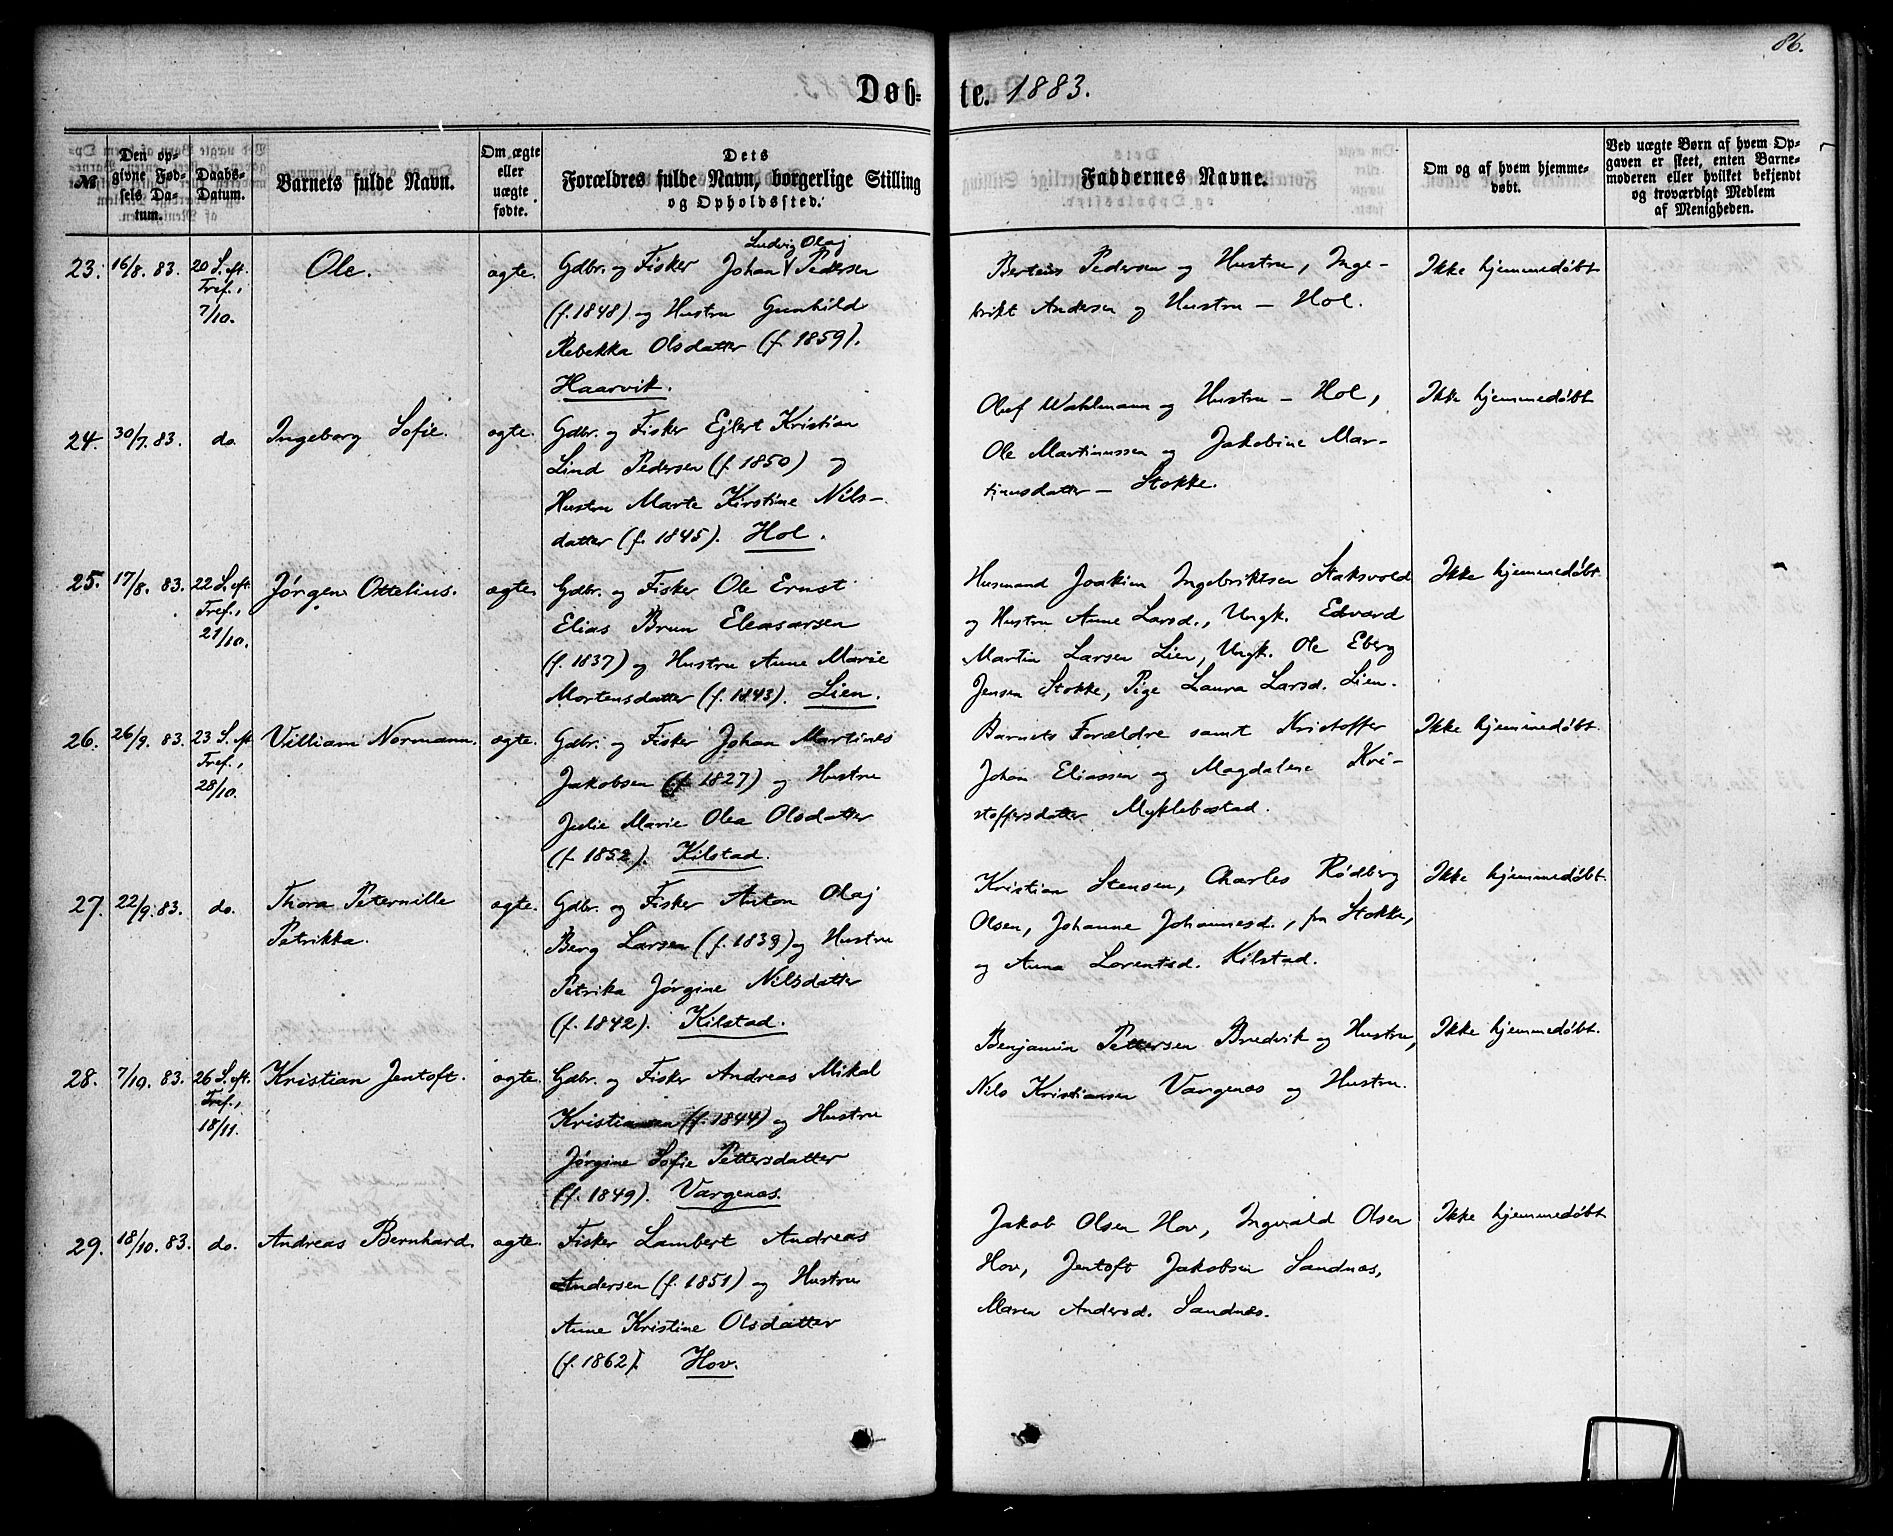 86.
Døb= te. 1883.
№
Den op-
givne Fød-
sels Da-
tum.
Daabs-
Datum.
Barnets fulde Navn.
Om ægte
eller
uægte
fødte.
Dets
Forældres fulde Navn, borgerlige Stilling
og Opholdssted.
Faddernes Navne.
Om og af hvem hjemme-
døbt.
Ved uægte Børn af hvem Op-
gaven er skeet, enten Barne-
moderen eller hvilket bekjendt
og troværdigt Medlem
af Menigheden.
23. 16/8. 83. 20 S. eft.
Tref.,
7/10.
Ole.
ægte.
Ludvig Olaj
Gdbr. og Fisker Johan V Pedersen
(f. 1848) og Hustru Gunhild
Rebekka Olsdatter (f. 1859).
Haarvik.
Berteus Pedersen og Hustru, Inge-
brikt Andersen og Hustru – Hol.
Ikke hjemmedøbt
24. 30/7. 83. do. Ingeborg Sofie. ægte.
Gdbr. og Fisker Ejlert Kristian
Lind Pedersen (f. 1850) og
Hustru Marte Kirstine Nils-
datter (f. 1845). Hol.
Oluf Wahlmann og Hustru – Hol,
Ole Martinussen og Jakobine Mar-
tinusdatter – Stokke.
Ikke hjemmedøbt
25. 17/8. 83. 22 S. eft.
Tref.,
21/10.
Jørgen Ottelius. ægte.
Gdbr. og Fisker Ole Ernst
Elias Brun Eleasarsen
(f. 1837) og Hustru Anne Marie
Mortensdatter (f. 1843). Lien.
Husmand Joakim Ingebriktsen Staksvold
og Hustru Anne Larsd., Ungk. Edvard
Martin Larsen Lien, Ungk. Ole Eberg
Jensen Stokke, Pige Laura Larsd. Lien.
Ikke hjemmedøbt
26. 26/9. 83. 23 S. eft
Tref.,
28/10.
Villiam Normann. ægte.
Gdbr. og Fisker Johan Martines
Jakobsen (f. 1827) og Hustru
Julie Marie Olea Olsdatter
(f. 1852). Kilstad.
Barnets Forældre samt Kristoffer
Johan Eliassen og Magdalene Kri-
stoffersdatter Myklebostad.
Ikke hjemmedøbt.
27. 22/9. 83. do. Thora Peternille
Petrikka.
ægte.
Gdbr. og Fisker Anton Olaj
Berg Larsen (f. 1839) og Hustru
Petrika Jørgine Nilsdatter
(f. 1842). Kilstad.
Kristian Stensen, Charles Rødberg
Olsen, Johanne Johannesd., fra Stokke,
og Anna Lorentsd. Kilstad.
Ikke hjemmedøbt.
28. 7/10. 83. 26 S. eft.
Tref.,
18/11.
Kristian Jentoft. ægte.
Gdbr. og Fisker Andreas Mikal
Kristiansen (f. 1844) og Hustru
Jørgine Sofie Pettersdatter
(f. 1849). Vargenæs.
Benjamin Pettersen Bredvik og Hustru,
Nils Kristiansen Vargenæs og Hustru.
Ikke hjemmedøbt.
29. 18/10. 83. do. Andreas Bernhard. ægte.
Fisker Lambert Andreas
Andersen (f. 1851) og Hustru
Anne Kristine Olsdatter
(f. 1862). Hov.
Jakob Olsen Hov, Ingvald Olsen
Hov, Jentoft Jakobsen Sandnæs,
Maren Andersd. Sandnæs.
Ikke hjemmedøbt